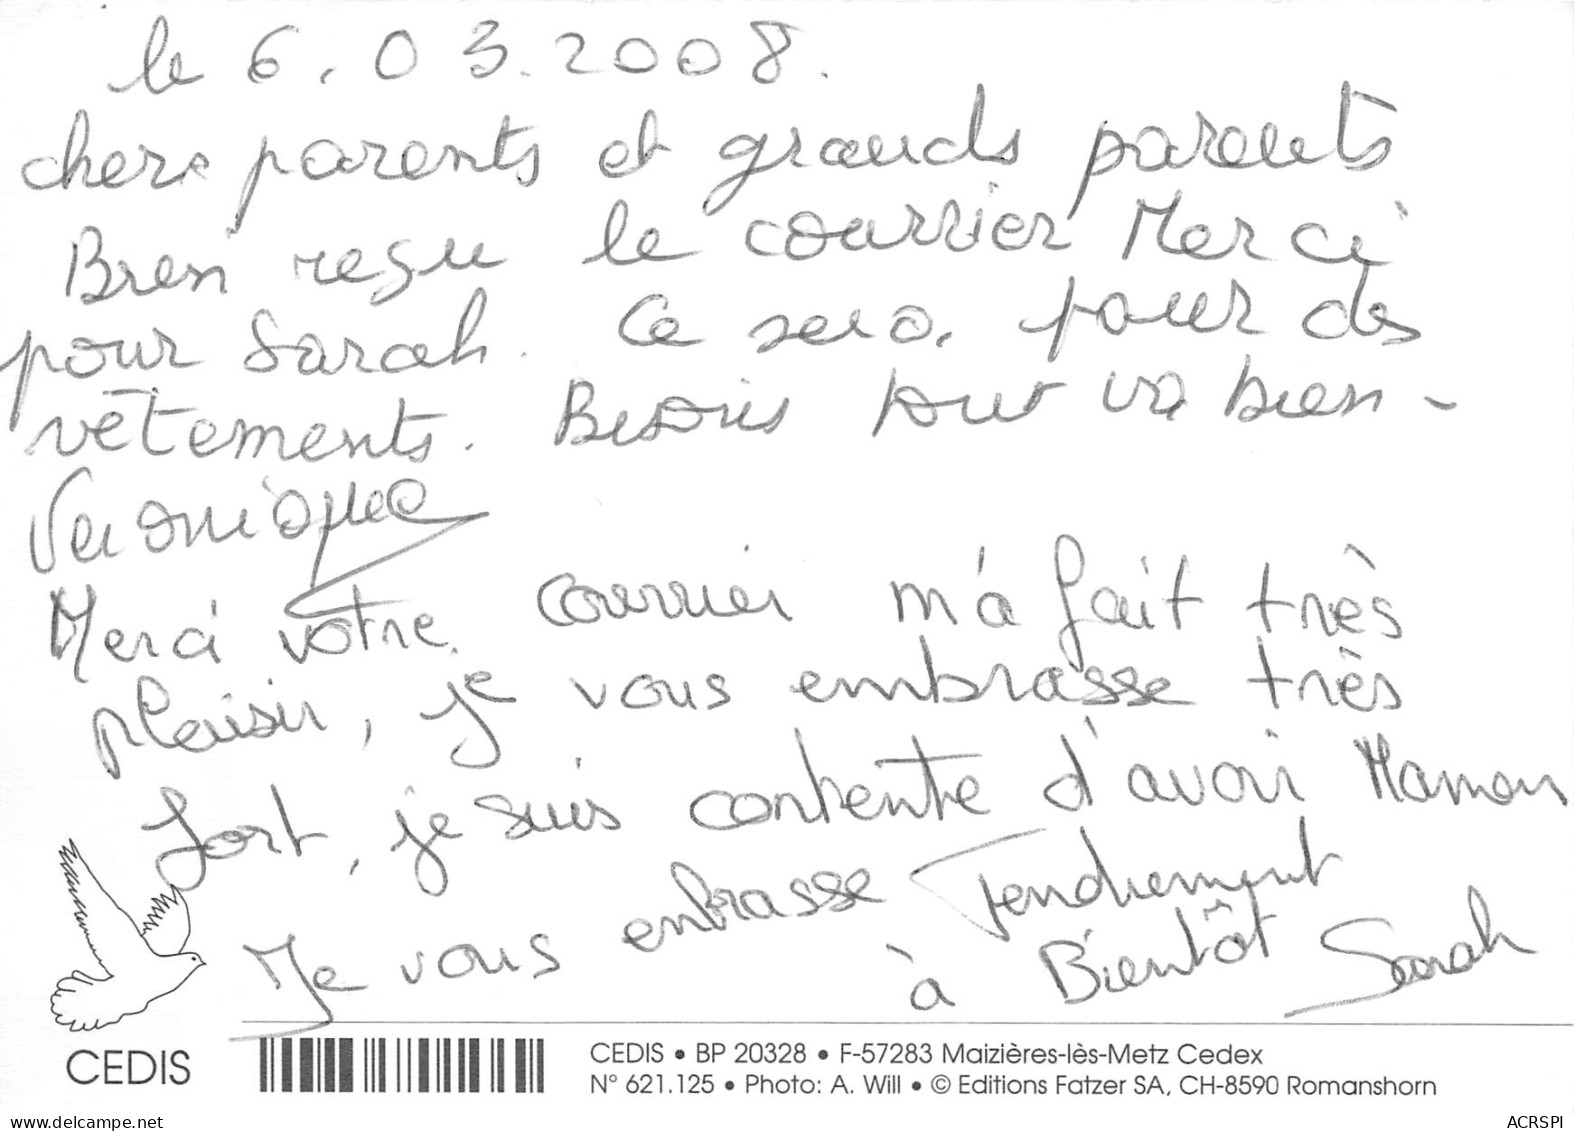 le 6.03.2008.
chers parents et grands parents
Bien reçu le courrier Merci
pour Sarah. Ce sera pour des
vêtements. Bisous tout va bien -
Veronique
Merci votre courrier m'a fait très
plaisir, je vous embrasse très
fort, je suis contente d'avoir Maman
Je vous embrasse Tendrement
à Bientôt Sarah
CEDIS
CEDIS • BP 20328 • F-57283 Maizières-lès-Metz Cedex
N° 621.125 • Photo: A. Will • © Editions Fatzer SA, CH-8590 Romanshorn
www.delcampe.net
ACRSPI